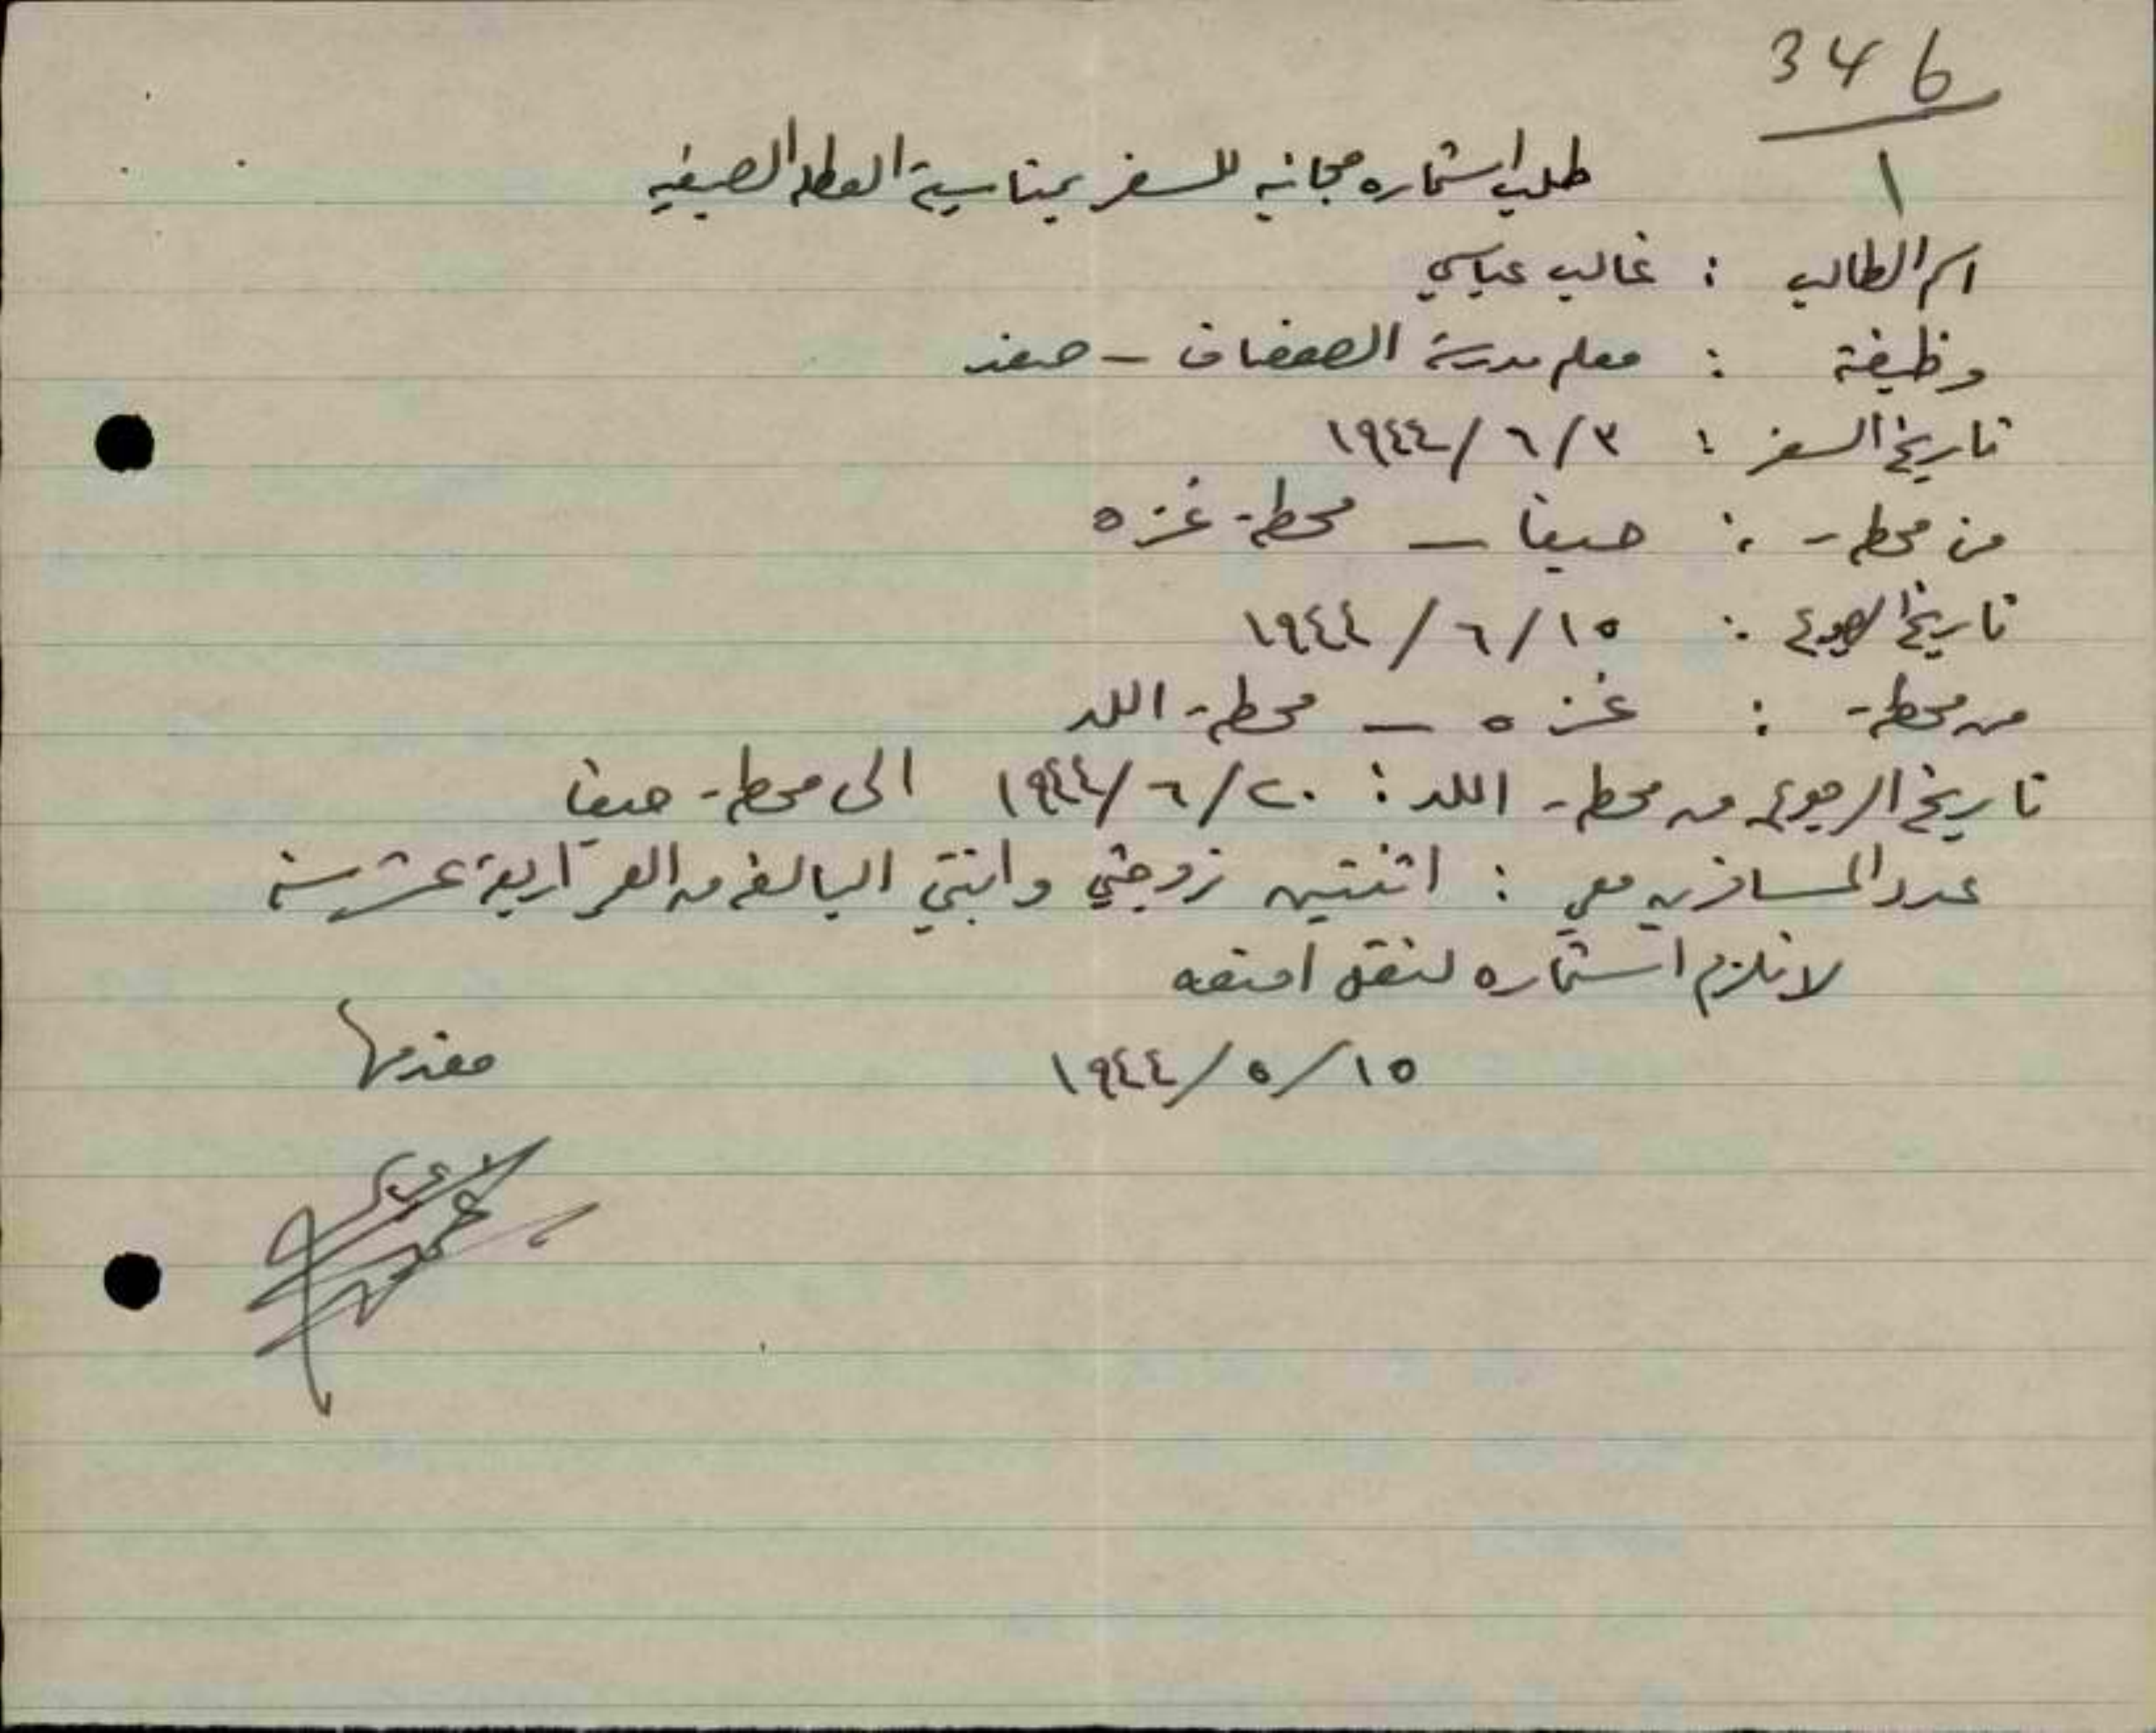 346
١
طلب استماره مجانيه للسفر بمناسبة العطله الصيفيه
اسم الطالب : غالب عباسي
وظيفة : معلم مدرسة الصفصاف - صفد
تاريخ السفر : ٣/٦/١٩٤٤
من محطة : حيفا - محطة غزه
تاريخ الرجوع : ١٥/٦/١٩٤٤
من محطة : غزه - محطة اللد
تاريخ الرجوع من محطة اللد : ٢٠/٦/١٩٤٤ الى محطة حيفا
عدد المسافرين معي : اثنتين زوجتي وابنتي البالغه من العمر اربعة عشر سنة
لا تلزم استماره لنقل امتعه
١٥/٥/١٩٤٤ مقدمها